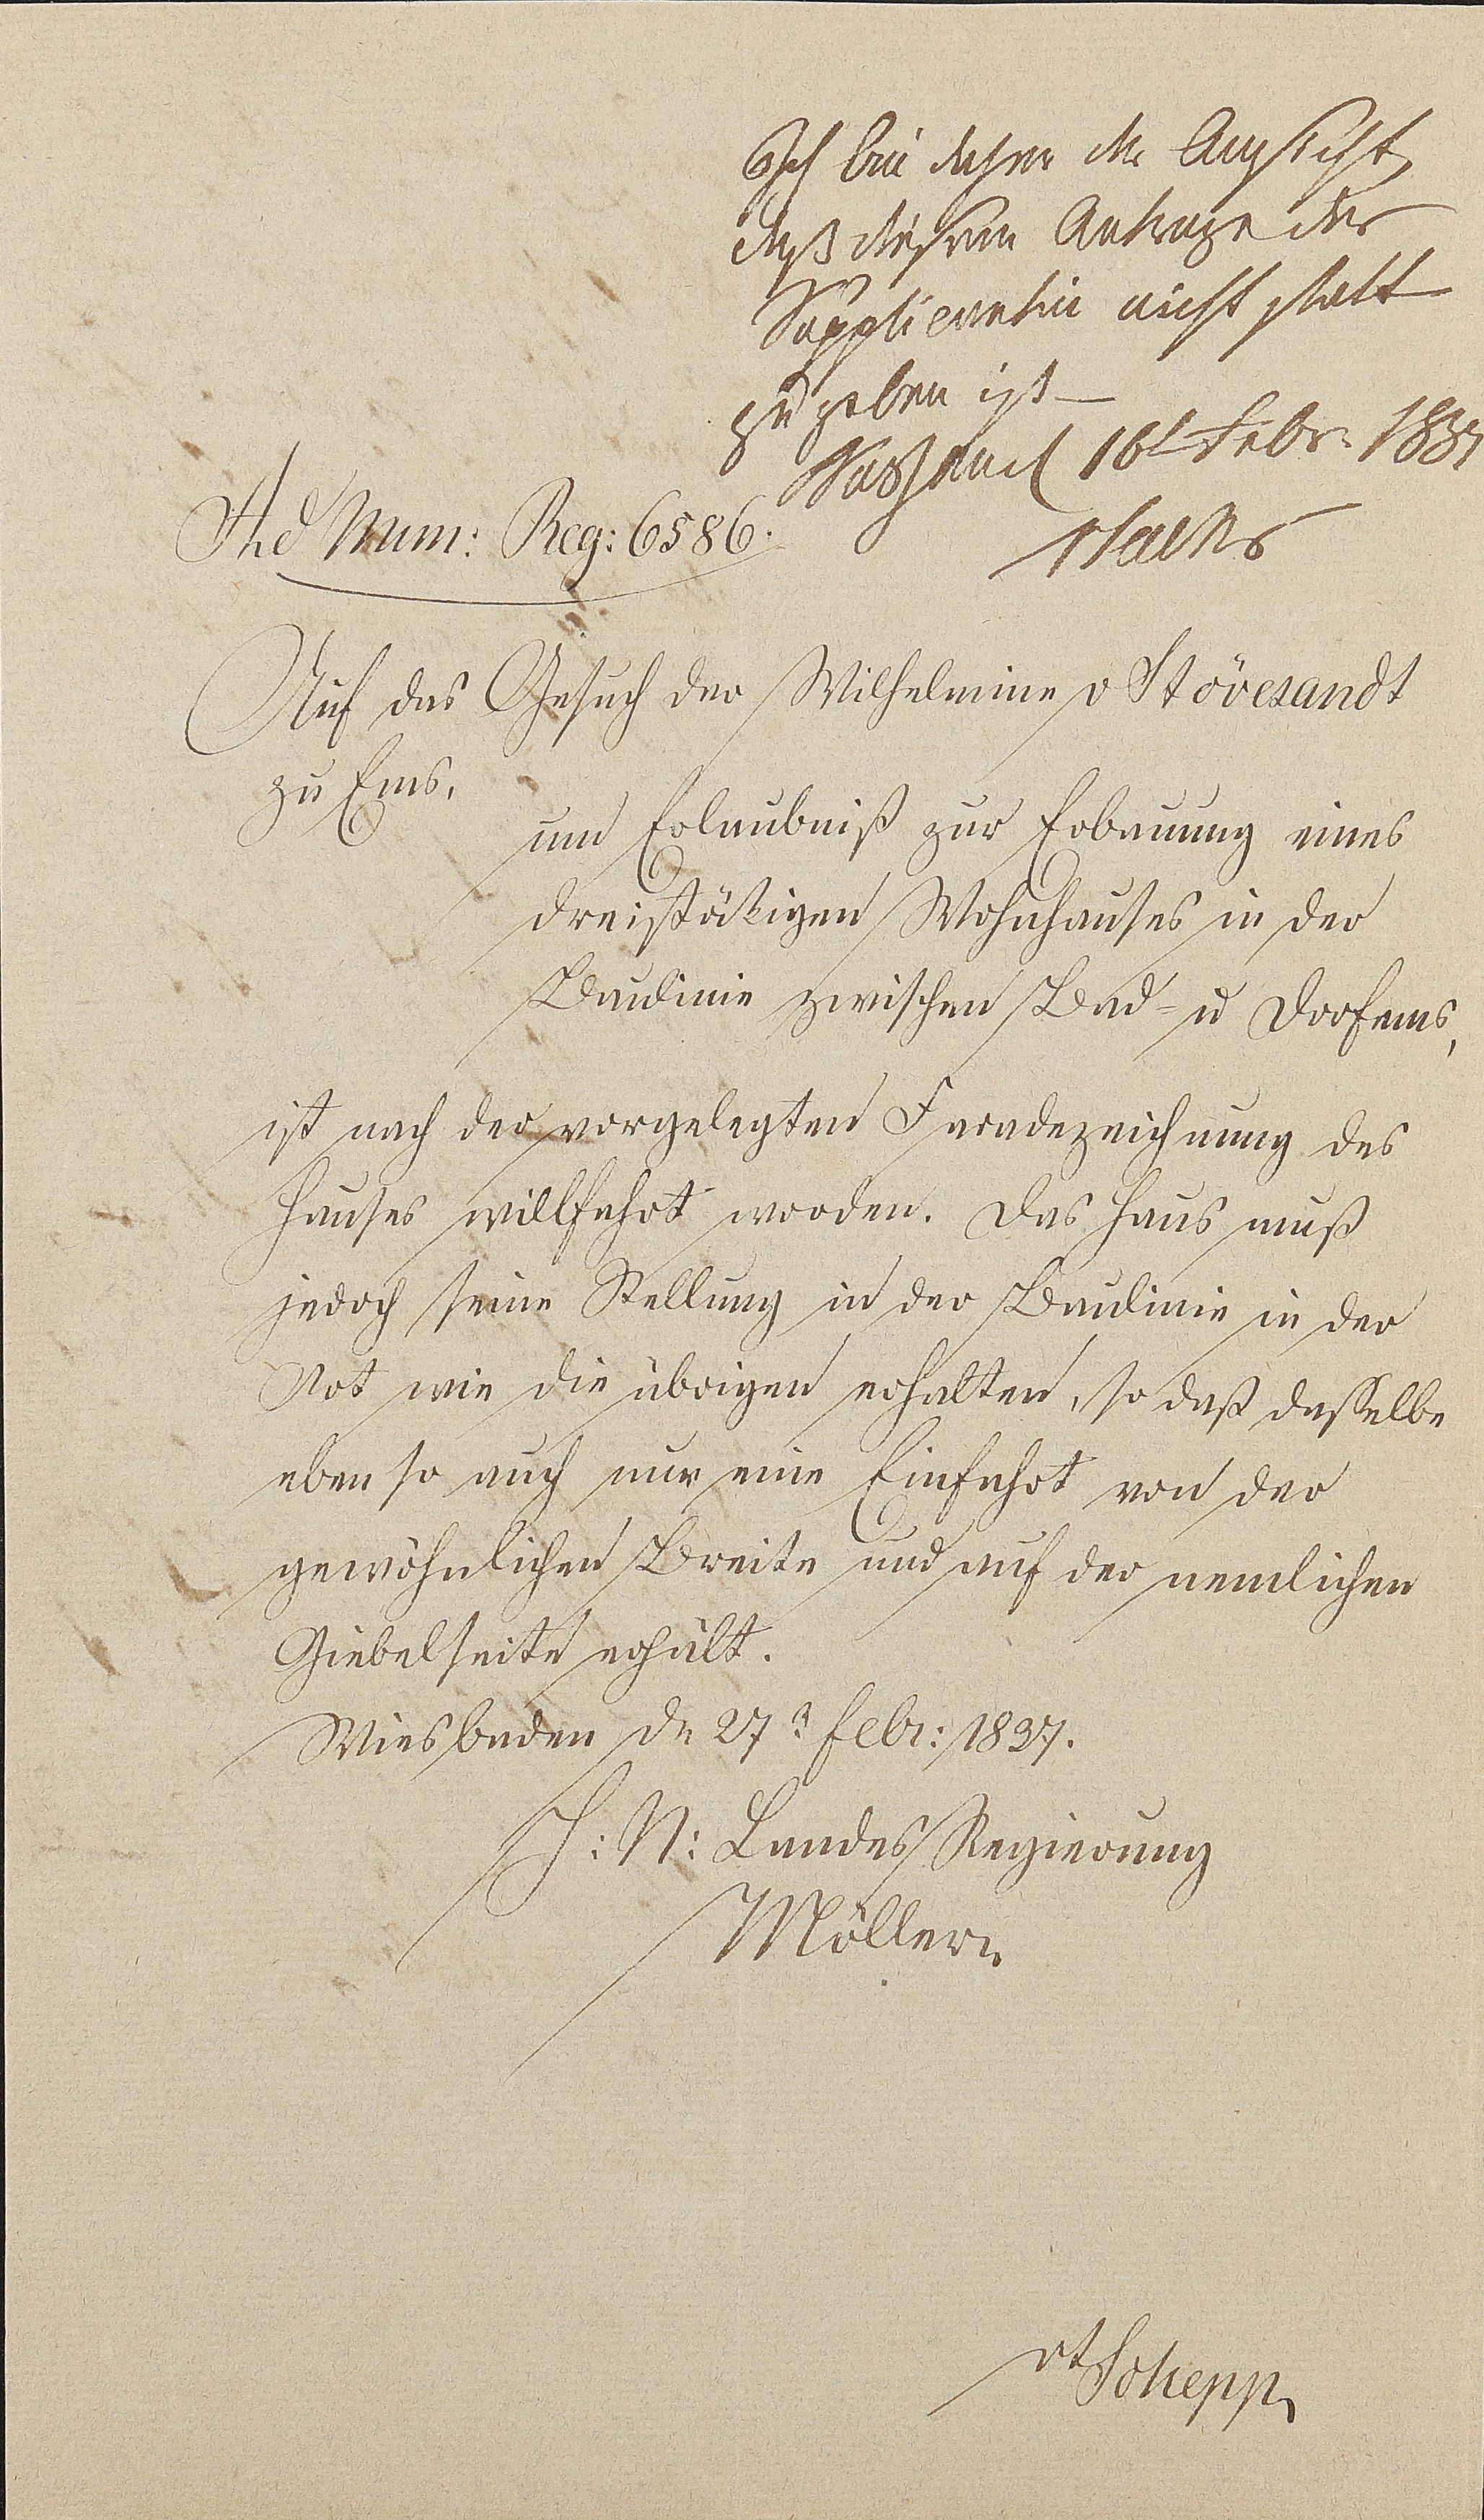 Ich bin daher der Ansicht,
daß diesem Antrage der
Supplicantin nicht statt
zu geben ist
16t Febr. 1837
Ad Num: Reg: 6586.
Auf das Gesuch der Wilhelmine v Stövesandt
zu Ems,
um Erlaubniß zur Erbauung eines
dreistökigen Wohnhauses in der
Baulinie zwischen Bad- u Dorfems,
ist nach der vorgelegten Facadezeichnung des
Hauses willfahrt worden. Das Haus muß
jedoch seine Stellung in der Baulinie in der
Art wie die übrigen erhalten, so daß dasselbe
eben so auch nur eine Einfahrt von der
gewöhnlichen Breite und auf der nemlichen
Giebelseite erhält.
Wiesbaden dn 27n Febr: 1837.
H: N: Landes Regierung
Möller
vt Schepp